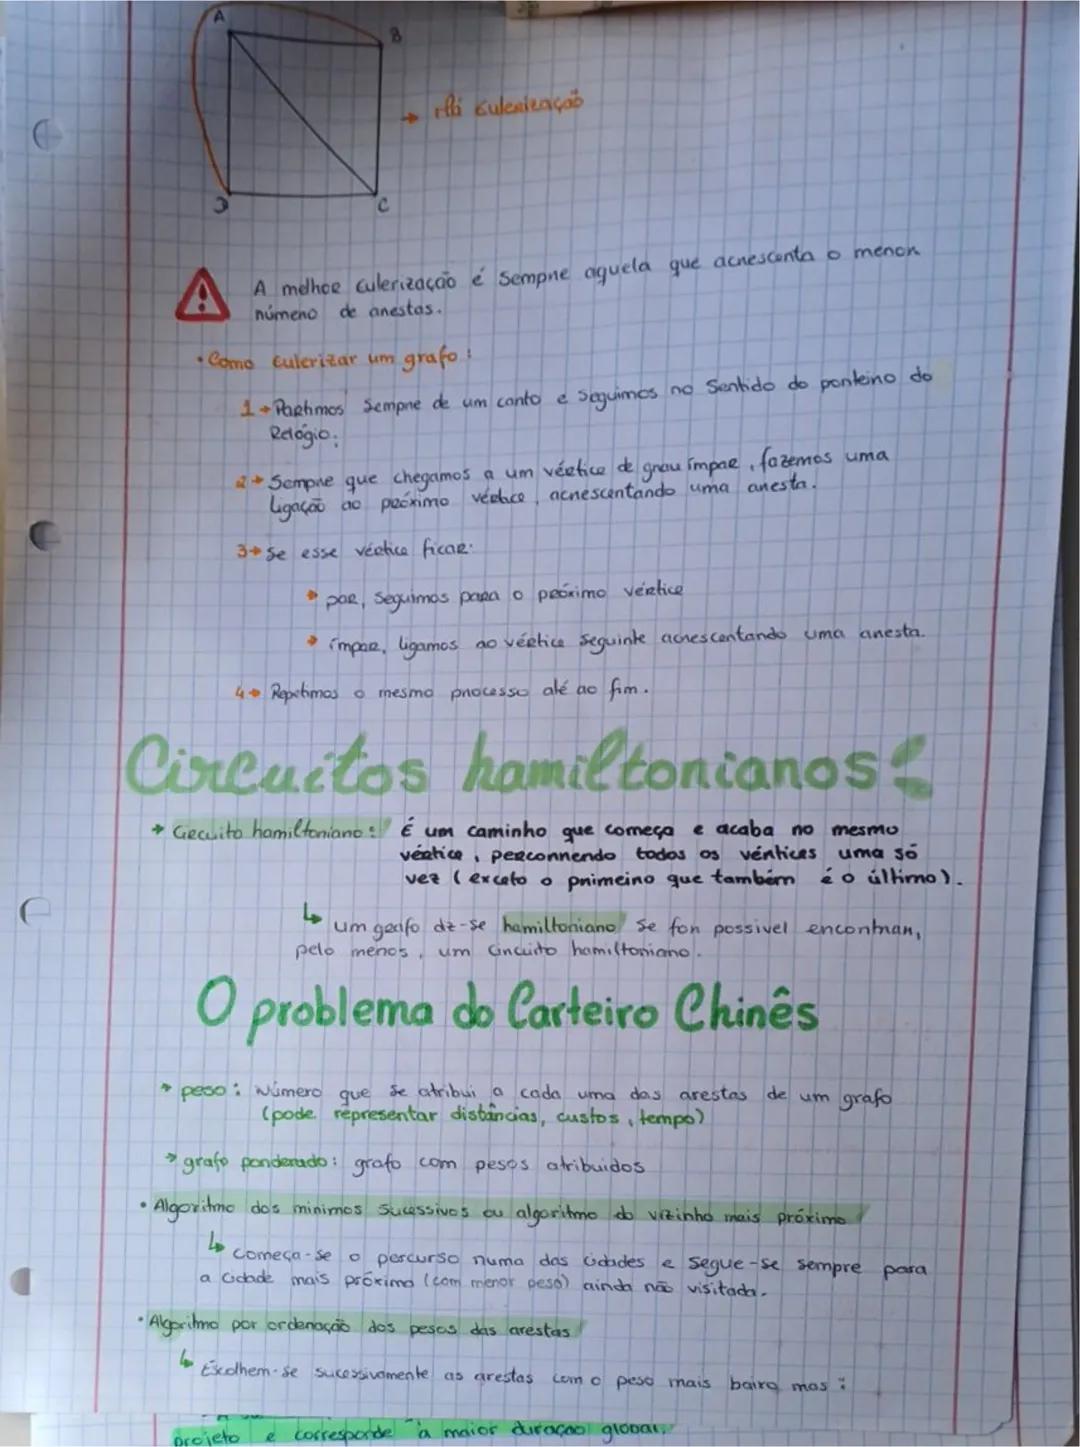 A
B
→ Há eulerização
D
C
A melhor eulerização é sempre aquela que acrescenta o menor
número de arestas.
• Como eulerizar um grafo:
1→ Partimos sempre de um canto e seguimos no sentido do ponteiro do
Relógio;
2→ Sempre que chegamos a um vértice de grau ímpar, fazemos uma
ligação ao próximo vértice, acrescentando uma aresta.
3→ Se esse vértice ficar:
→ par, seguimos para o próximo vértice
→ ímpar, ligamos ao vértice seguinte acrescentando uma aresta.
4→ Repetimos o mesmo processo até ao fim.
Circuitos hamiltonianos:
→ Circuito hamiltoniano: É um caminho que começa e acaba no mesmo
vértice, percorrendo todos os vértices uma só
vez (exceto o primeiro que também é o último).
↳ um grafo diz-se hamiltoniano se for possivel encontrar,
pelo menos, um circuito hamiltoniano.
O problema do Carteiro Chinês
→ peso: Número que se atribui a cada uma das arestas de um grafo
(pode representar distâncias, custos, tempo)
→ grafo ponderado: grafo com pesos atribuidos
• Algoritmo dos minimos sucessivos ou algoritmo do vizinho mais próximo
↳ Começa-se o percurso numa das cidades e segue-se sempre para
a cidade mais próxima (com menor peso) ainda não visitada.
• Algoritmo por ordenação dos pesos das arestas
↳ Escolhem-se sucessivamente as arestas com o peso mais baixo, mas:
projeto e corresponde à maior duração global.